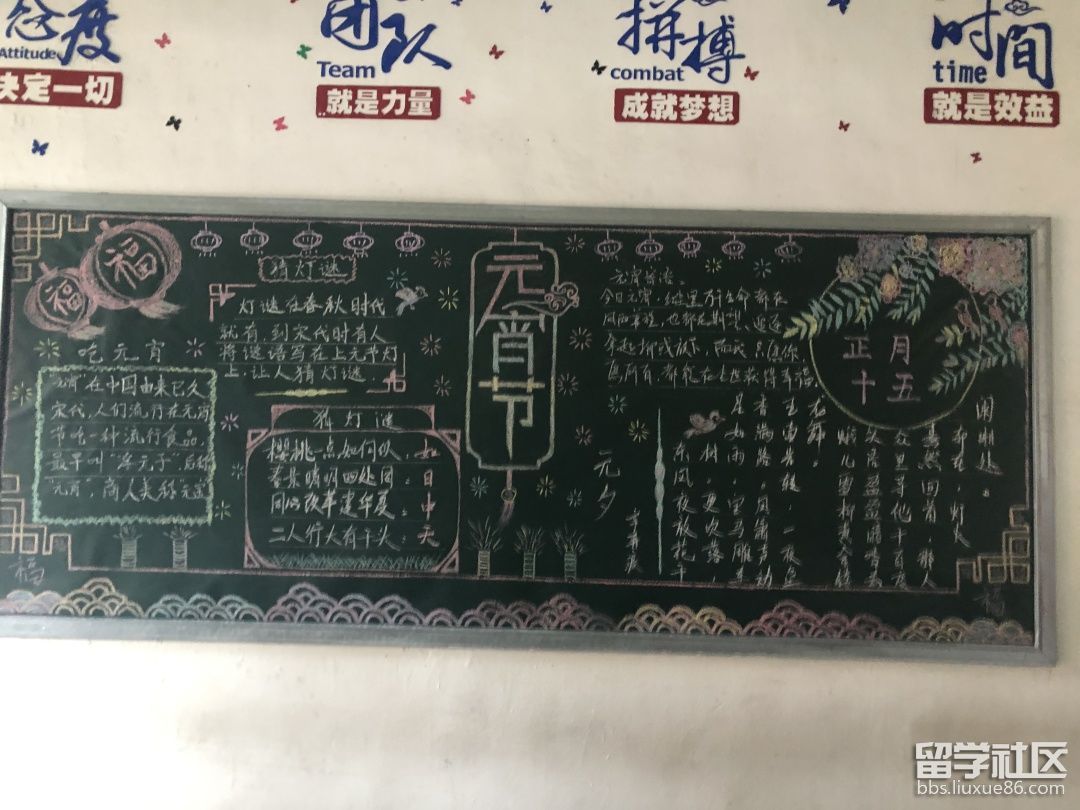 态度
Attitude
决定一切
团队
Team
就是力量
拼搏
combat
成就梦想
时间
time
就是效益
福
福
吃元宵
元宵在中国由来已久
宋代,人们流行在元宵
节吃一种流行食品,
最早叫“浮元子”,后称
元宵,商人美称元宝
猜灯谜
灯谜在春秋时代
就有,到宋代时有人
将谜语写在上元节灯
上,让人猜灯谜.
猜灯谜
樱桃一点如何似,如
春景晴明四处同:日
同心改革建华夏:中
二人行大有千头:天
元宵节
元宵
今日元宵,
正月
十五
元夕
东风夜放花千
树,更吹落,
星如雨,宝马雕车
香满路,凤箫声动
玉壶光转,一夜鱼
龙舞。
蛾儿雪柳黄金缕
笑语盈盈暗香去
众里寻他千百度
蓦然回首,那人
却在,灯火
阑珊处。
福
福
留学社区
bbs.liuxue86.com